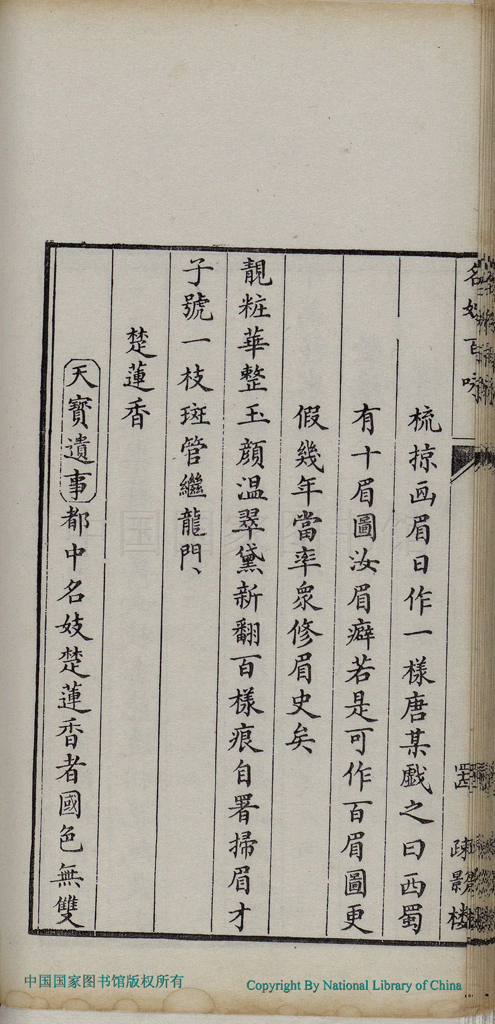 名妓百咏
疎景楼
梳掠画眉日作一樣唐某戲之曰西蜀
有十眉圖汝眉癖若是可作百眉圖更
假幾年當率眾修眉史矣
靚粧華整玉顏温翠黛新翻百樣痕自署掃眉才
子號一枝斑管繼龍門、
楚蓮香
天寶遺事都中名妓楚蓮香者國色無雙
中国国家图书馆版权所有
Copyright By National Library of China